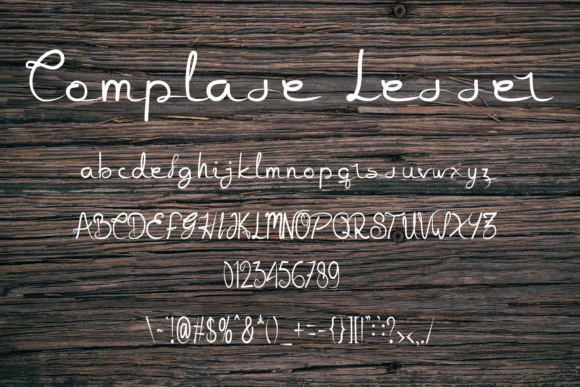 Complate Letter
abcdefghijklmnopqrstuvwxyz
ABCDEFGHIJKLMNOPQRSTUVWXYZ
0123456789
\~`!@#$%^&*()_+=-{}][|":;?><,./